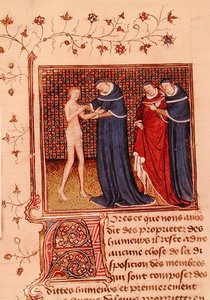 Ores ce que nous auons
dit des proprietez des
humeurs il reste a dire
aucune chose de la di
sposicion des membres
qui sont composez des
dittes humeurs et premierement